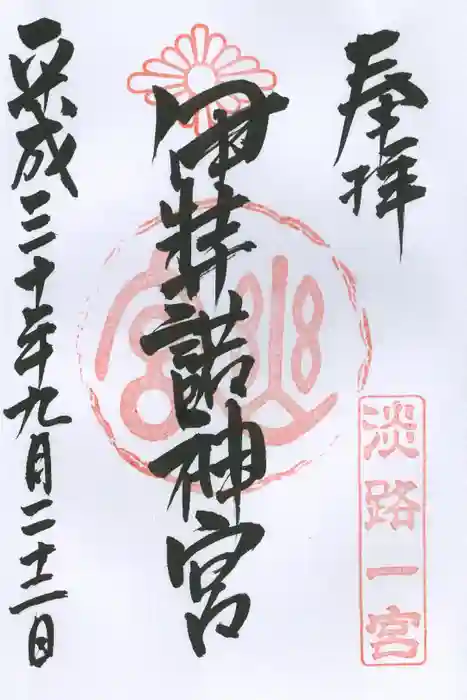 奉拝
淡路一宮
伊弉諾神宮
幽宮
平成三十年九月二十二日